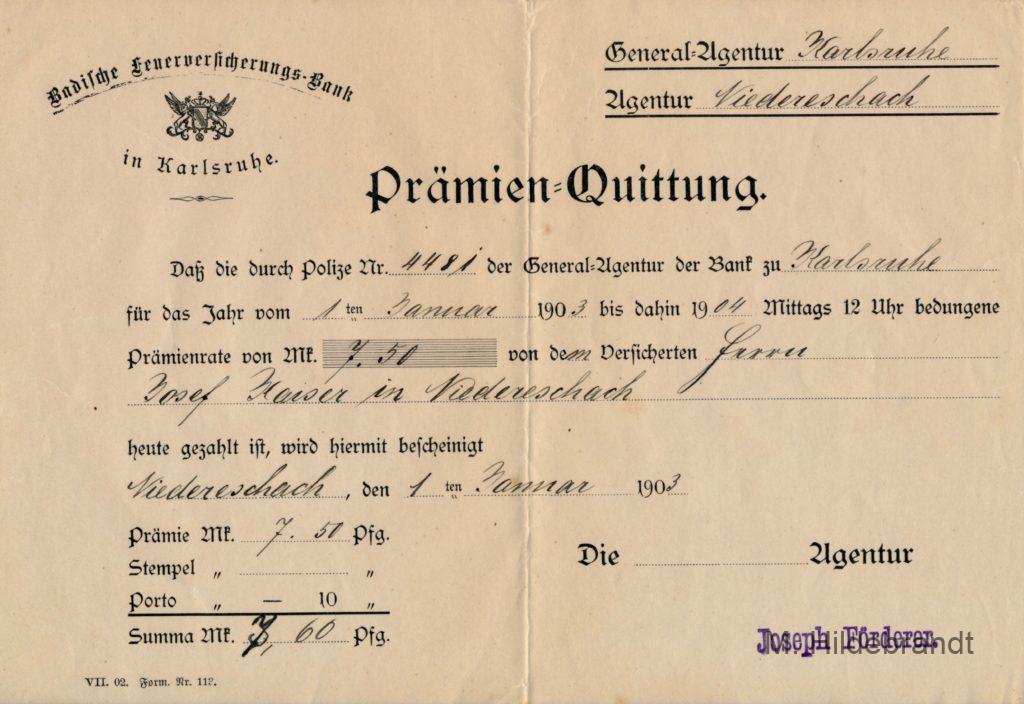 Badische Feuerversicherungs-Bank
in Karlsruhe.
General-Agentur Karlsruhe
Agentur Niedereschach
Prämien-Quittung.
Daß die durch Polize Nr. 4481 der General-Agentur der Bank zu Karlsruhe
für das Jahr vom 1 ten Januar 1903 bis dahin 1904 Mittags 12 Uhr bedungene
Prämienrate von Mk. 7.50 von dem Versicherten Herrn
Josef Kaiser in Niedereschach
heute gezahlt ist, wird hiermit bescheinigt
Niedereschach, den 1 ten Januar 1903
Prämie Mk. 7. 50 Pfg.
Stempel „ „
Porto „ — 10 „
Summa Mk. 7, 60 Pfg.
Die Agentur
Joseph Förderer.
M. Hildebrandt
VII. 02. Form. Nr. 112.